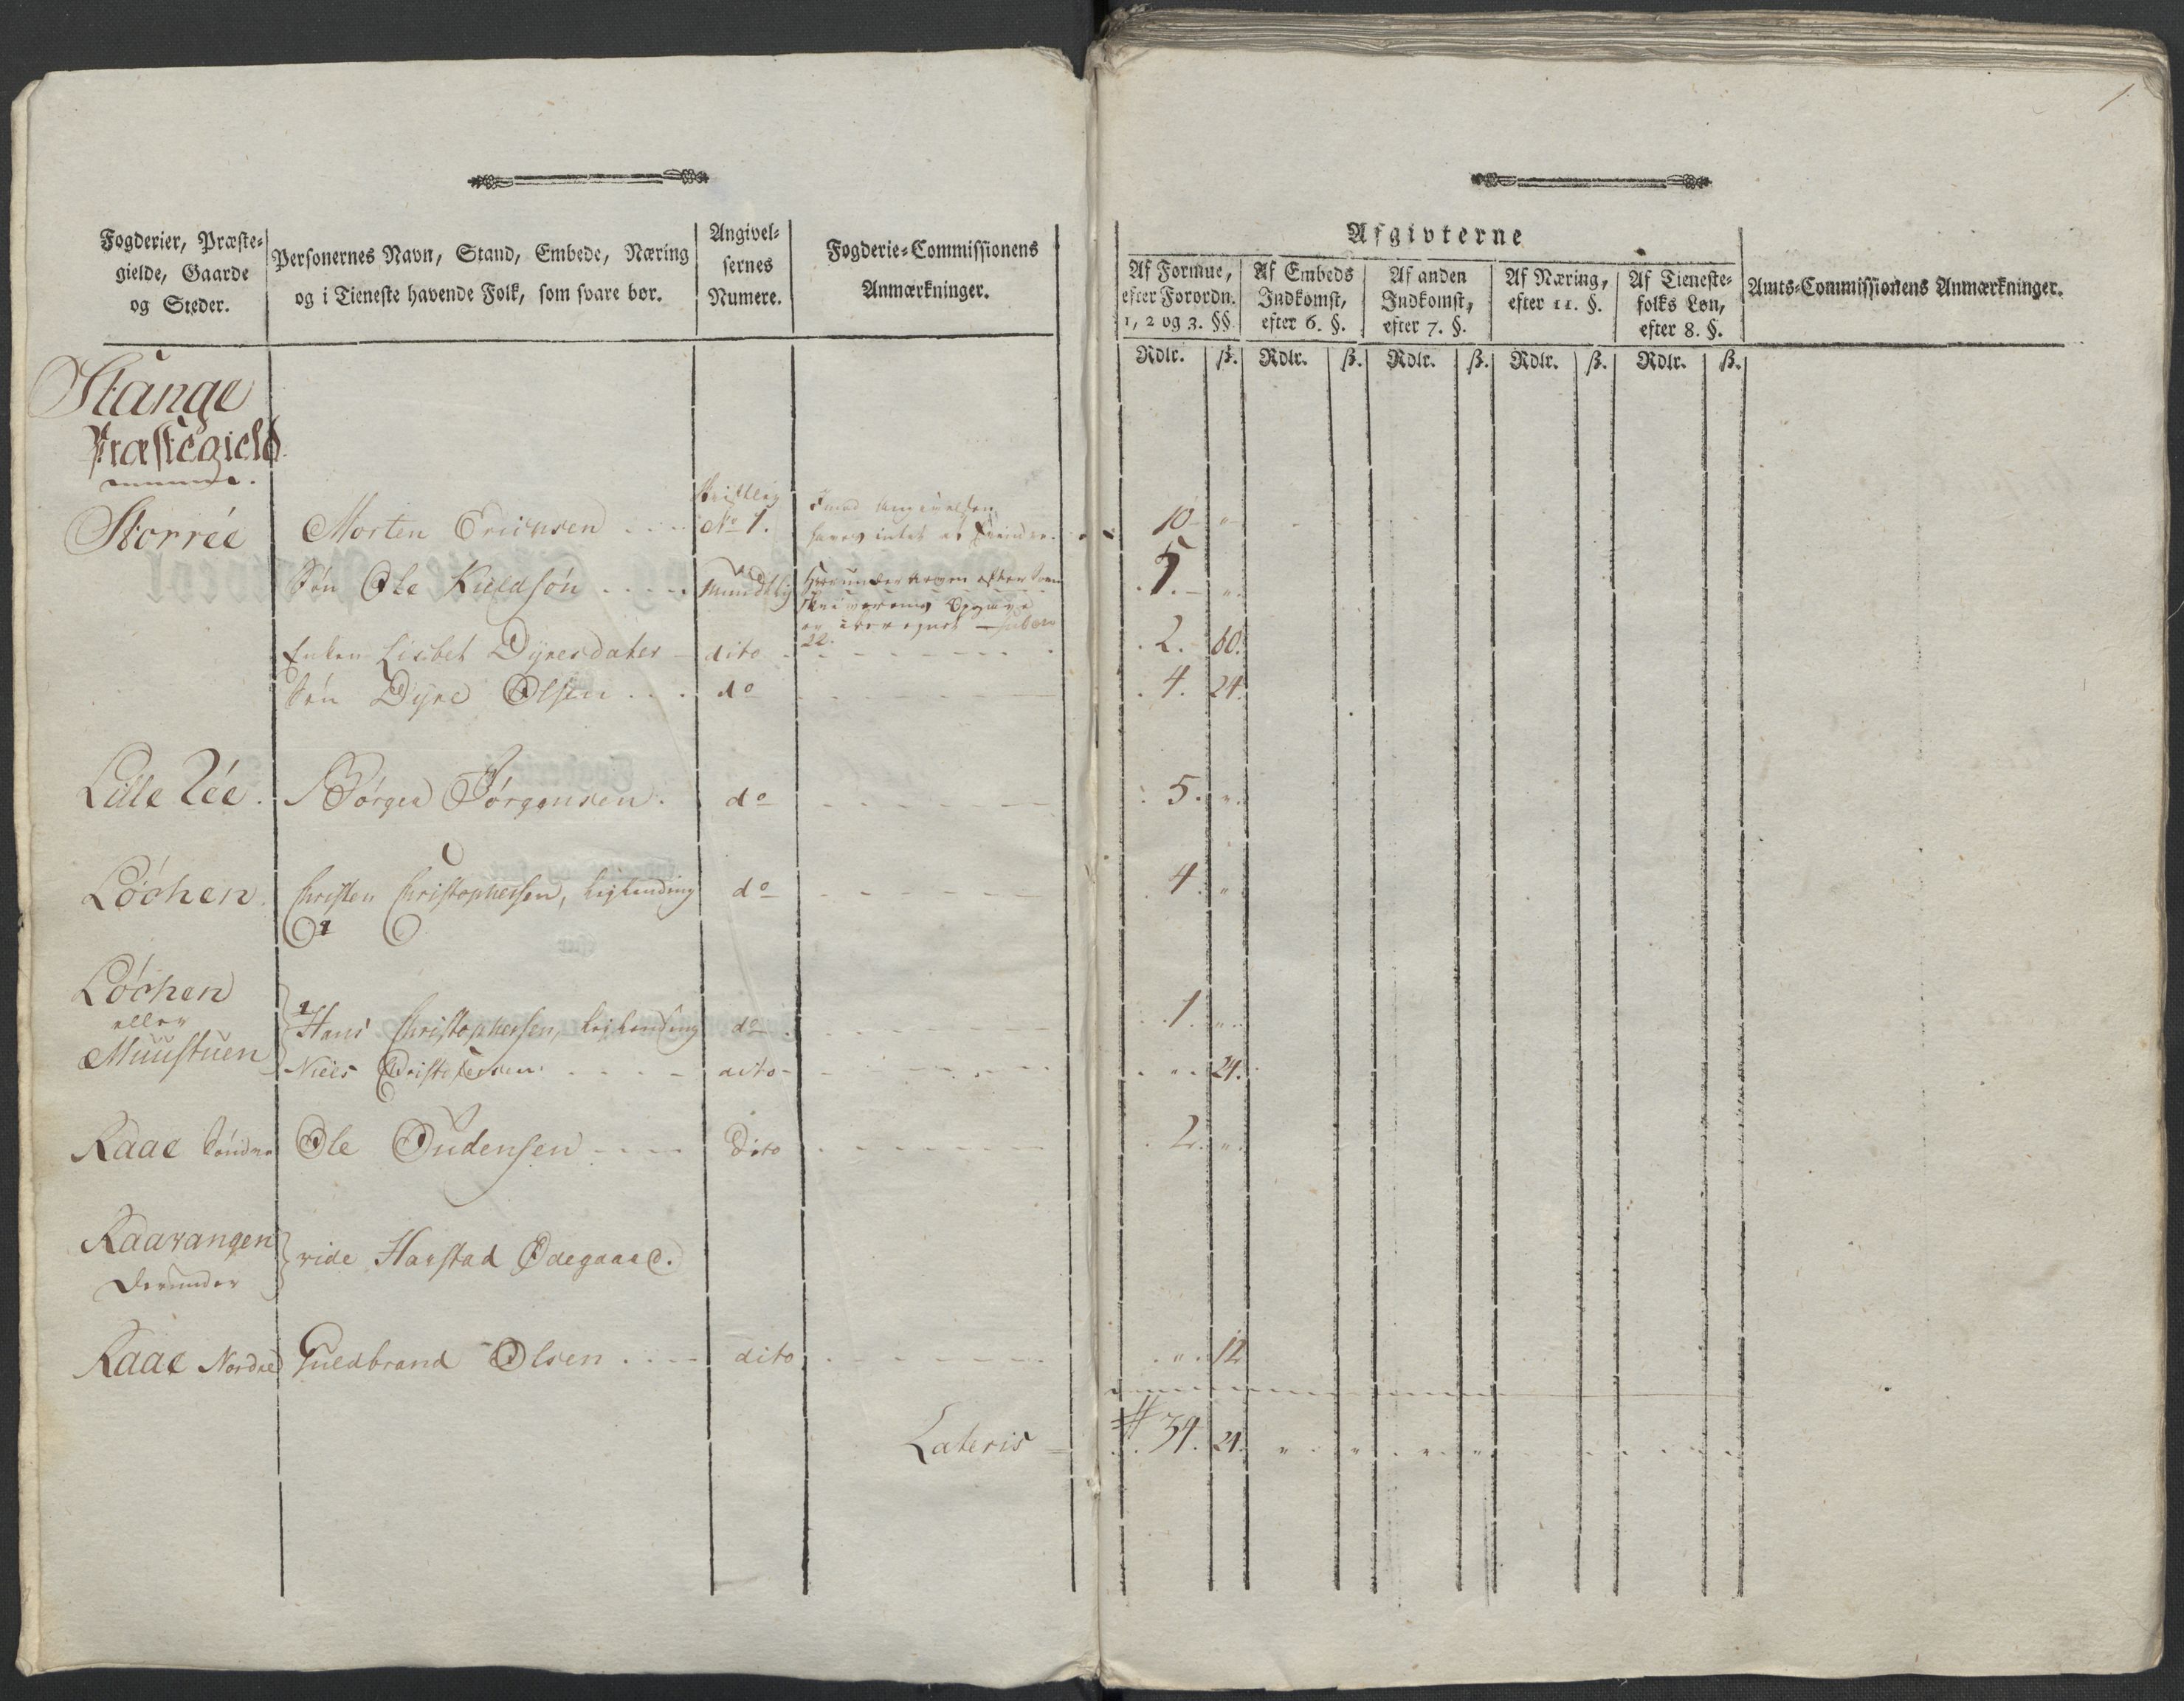 Fogderier, Præste-
gielde, Gaarde
og Steder.
Personernes Navn, Stand, Embede, Næring
og i Tieneste havende Folk, som svare bør.
Angivel-
sernes
Numere.
Fogderie-Commissionens
Anmærkninger.
Afgivterne
Af Formue,
efter Forordn.
1, 2 og 3. §§.
Af Embeds
Indkomst,
efter 6. §.
Af anden
Indkomst,
efter 7. §.
Af Næring,
efter 11. §.
Af Tieneste-
folks Løn,
efter 8. §.
Amts-Commissionens Anmærkninger.
Rdlr. ß. Rdlr. ß. Rdlr. ß. Rdlr. ß. Rdlr. ß.
Stange
Præstegield
Skriftlig
Storrée Morten Erichsen No 1. 10 "
imod Angivelsen
haves intet at Erindre
Søn Ole Kieldsøn Mundtlig 5. "
Enken Lisbet Dyresdater dito 2. 60.
22.
Søn Dyre Olsen do 4. 24.
Lille Rée. Jørgen Jørgensen. do 5. "
Løchen Christen Christophersen, do 4. "
Løchen
eller
Muustuen
Hans Christophersen, do 1. "
Niels dito " 24.
Raae Søndre Ole Oudensen Dito 2. "
Raavangen vide Harstad Ødegaard.
Derunder
Raae Nordre Guldbrand Olsen dito " 12
Lateris 34. 24. " " " "
1